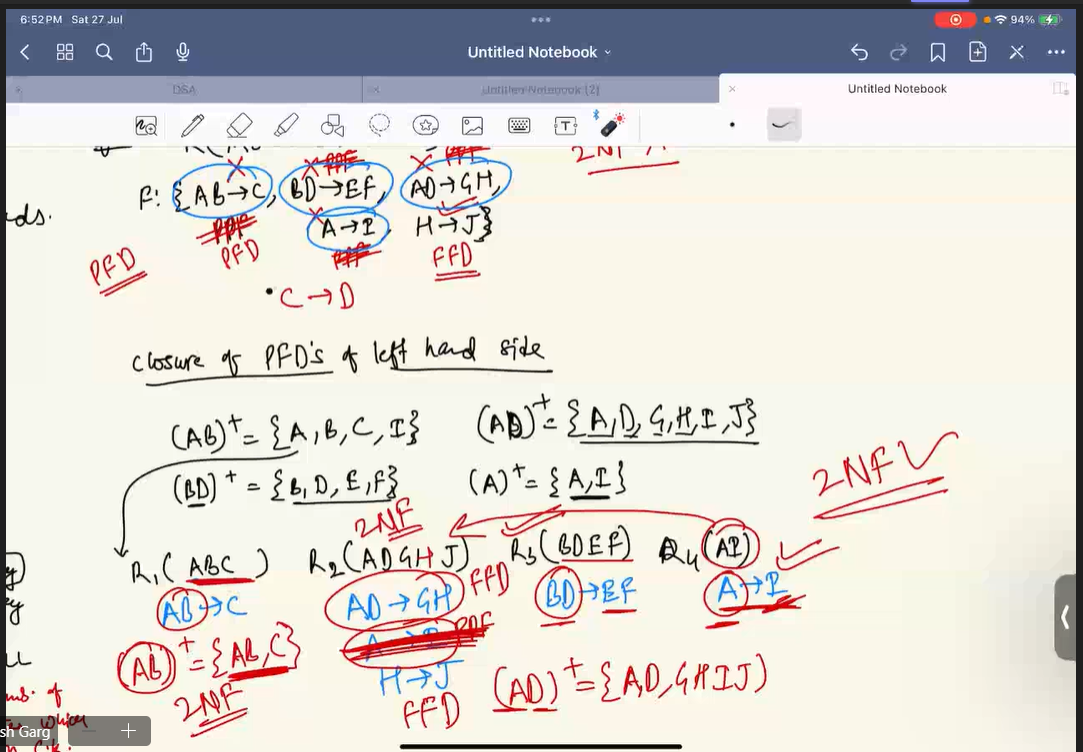 6:52PM Sat 27 Jul
94%
Untitled Notebook
DSA
Untitled Notebook (2)
Untitled Notebook
2NF
F: {AB→C, BD→EF, AD→GH,
ds.
A→I, H→J}
PFD
PFD
FFD
C→D
closure of PFD's of left hand side
(AB)+ = {A, B, C, I} (AD)+ = {A, D, G, H, I, J}
(BD)+ = {B, D, E, F} (A)+ = {A, I}
2NF
2NF
R1(ABC) R2(ADGHJ) R3(BDEF) R4(AI)
AB→C AD→GH FFD BD→EF A→I
(AB)+ = {AB,C}
H→J
(AD)+ = {A,D,GHIJ)
2NF
FFD
sh Garg